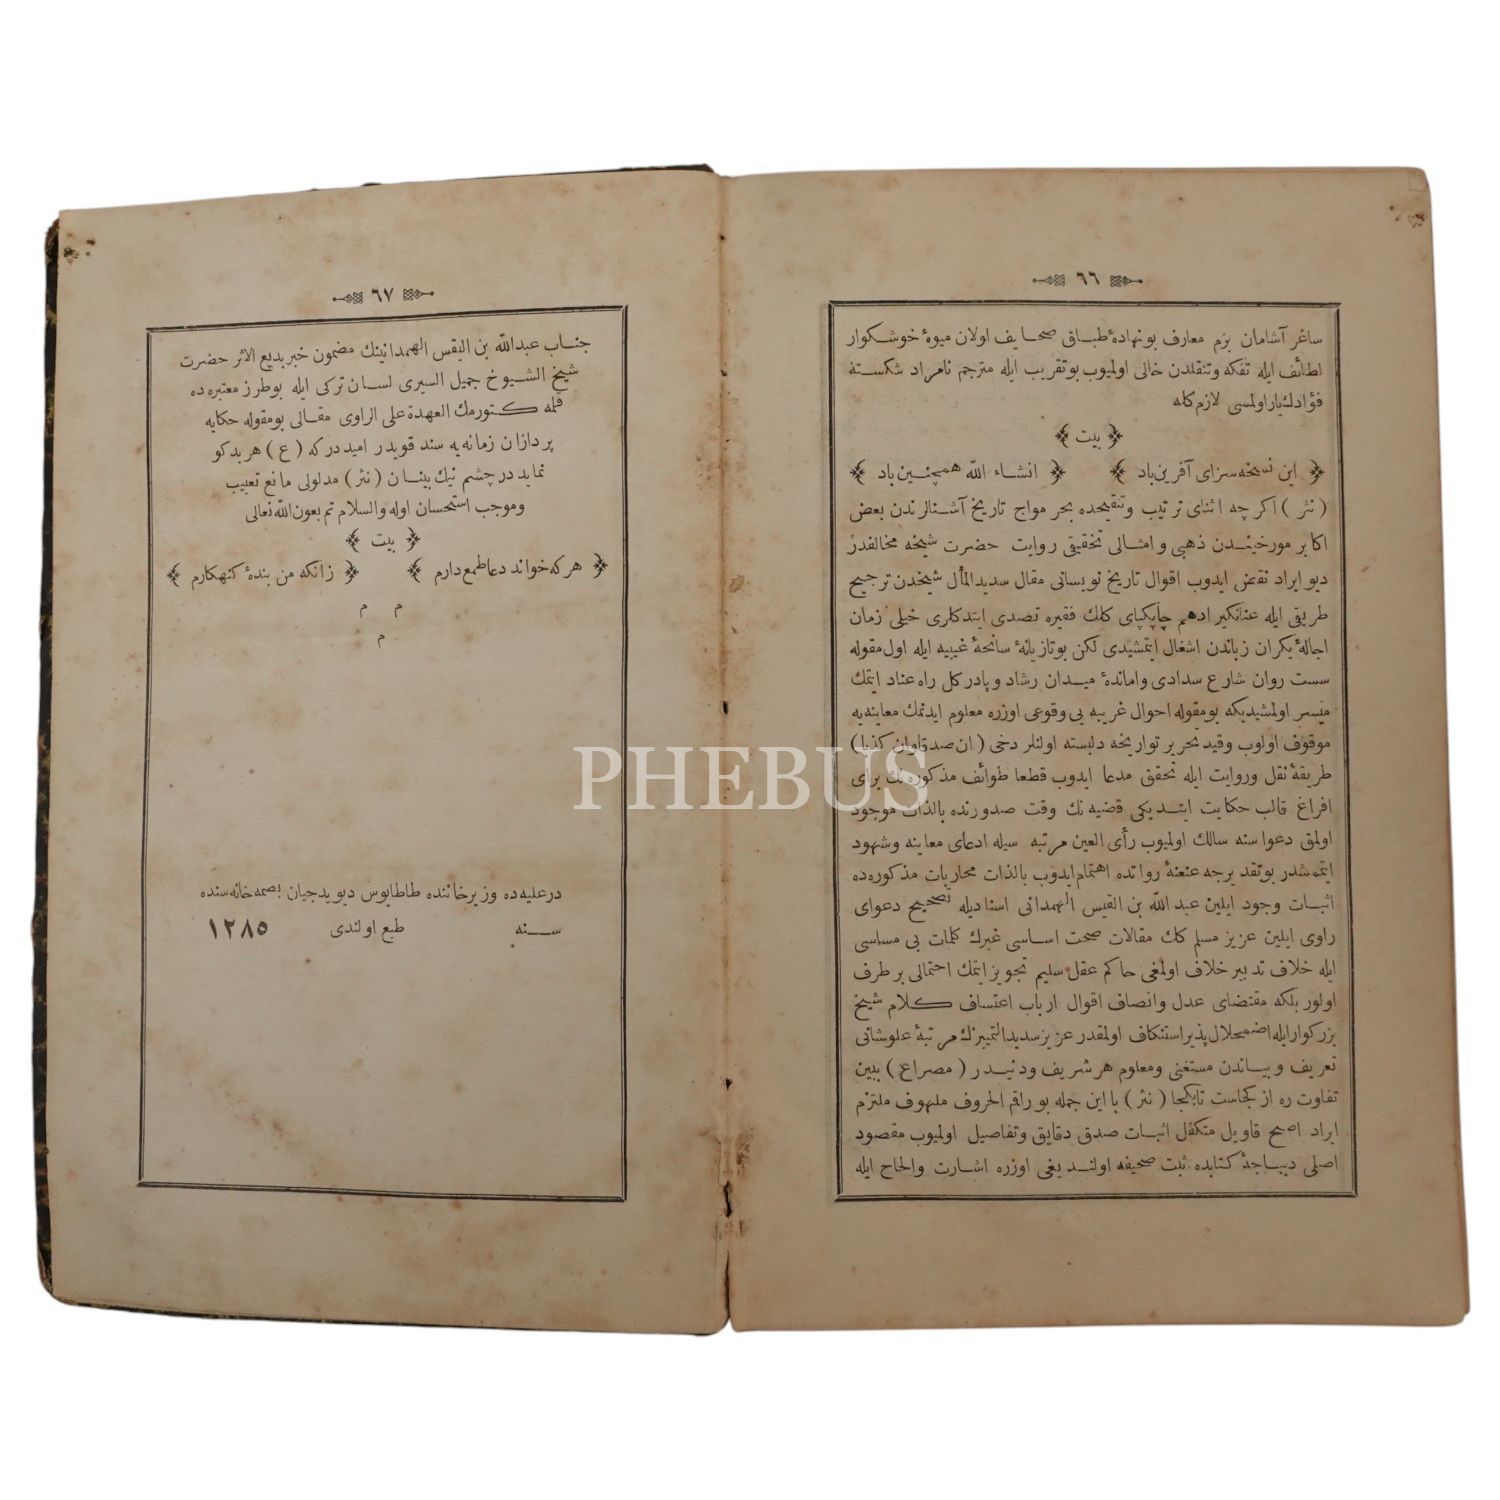 ٦٦
ساغر آشامان بزم معارف بونهادهٔ طباق صحایف اولان میوهٔ خوشکوار
لطائف ایله تفکه وتنقلدن خالی اولمیوب بوتقریب ایله مترجم نامراد شکسته
فؤادك یار اولمسی لازم کله
﴿ بیت ﴾
﴿ این نسخه سزای آفرین باد ﴾ ﴿ انشاء الله همچنین باد ﴾
( نثر ) اکرچه اثنای ترتیب وتنقیحده بحر مواج تاریخ آشنالرندن بعض
اکابر مورخیندن ذهبی وامثالی تحقیقی روایت حضرت شیخه مخالفدر
دیو ایراد نقض ایدوب اقوال تاریخ نویسانی مقال سدیدالمأل شیخدن ترجیح
طریقی ایله عنانکیر ادهم چاپکپای کلك فقیره تصدی ایتدکلری خیلی زمان
اجالهٔ یکران زباندن اشغال ایتمشیدی لکن بوتازیانهٔ سانحهٔ غیبیه ایله اول مقوله
سست روان شارع سدادی واماندهٔ میدان رشاد وپادرکل راه عناد ایتمك
میسر اولمشیدیکه بومقوله احوال غریبه بی وقوعی اوزره معلوم ایدنمك معاینه یه
موقوف اولوب وقید تحریر تواریخه دلبسته اولنلر دخی ( ان صدقا وان کذبا )
طریقهٔ نقل وروایت ایله تحقق مدعا ایدوب قطعا طوائف مذکوره نك برای
افراغ قالب حکایت ایتدیکی قضیه نك وقت صدورنده بالذات موجود
اولمق دعواسنه سالك اولمیوب رأی العین مرتبه سیله ادعای معاینه وشهود
ایتمه شدر بوتقدیرجه عنعنهٔ رواتده اهتمام ایدوب بالذات محاربات مذکوره ده
اثبات وجود ایلین عبدالله بن القیس الهمدانی اسنادیله تصحیح دعوای
راوی ایلین عزیز مسلم کك مقالات صحت اساسی غیرك کلمات بی مساسی
ایله خلاف تدبیر خلاف اولمغی حاکم عقل سلیم تجویز ایتمك احتمالی برطرف
اولور بلکه مقتضای عدل وانصاف اقوال ارباب اعتساف کلام شیخ
بزرکوار ایله اضمحلال پذیر استنکاف اولمقدر عزیز سدیدالتمییزك مرتبهٔ علوشانی
تعریف وبیاندن مستغنی ومعلوم هر شریف ودنیدر ( مصراع ) ببین
تفاوت ره از کجاست تابکجا ( نثر ) با این جمله بو راقم الحروف ملهوف ملتزم
ایراد اصح قاویل متکفل اثبات صدق دقایق وتفاصیل اولمیوب مقصود
اصلی دیباجهٔ کتابده ثبت صحیفه اولندیغی اوزره اشارت والحاح ایله
٦٧
جناب عبدالله بن القیس الهمدانینك مضمون خبر بدیع الاثر حضرت
شیخ الشیوخ جمیل السیری لسان ترکی ایله بوطرز معتبره ده
قلمه کتورمك العهدة علی الراوی مقالی بومقوله حکایه
پردازان زمانه یه سند قویدر امیددرکه ( ع ) هر بدکو
نماید درچشم نیك بینان ( نثر ) مدلولی مانع تعییب
وموجب استحسان اوله والسلام تم بعون الله تعالی
﴿ بیت ﴾
﴿ هرکه خواند دعا طمع دارم ﴾ ﴿ زانکه من بندهٔ کنهکارم ﴾
م م
م
درعلیه ده وزیرخاننده طاطایوس دیویدجیان بصمه خانه سنده
طبع اولندی سنه ١٢٨٥
PHEBUS